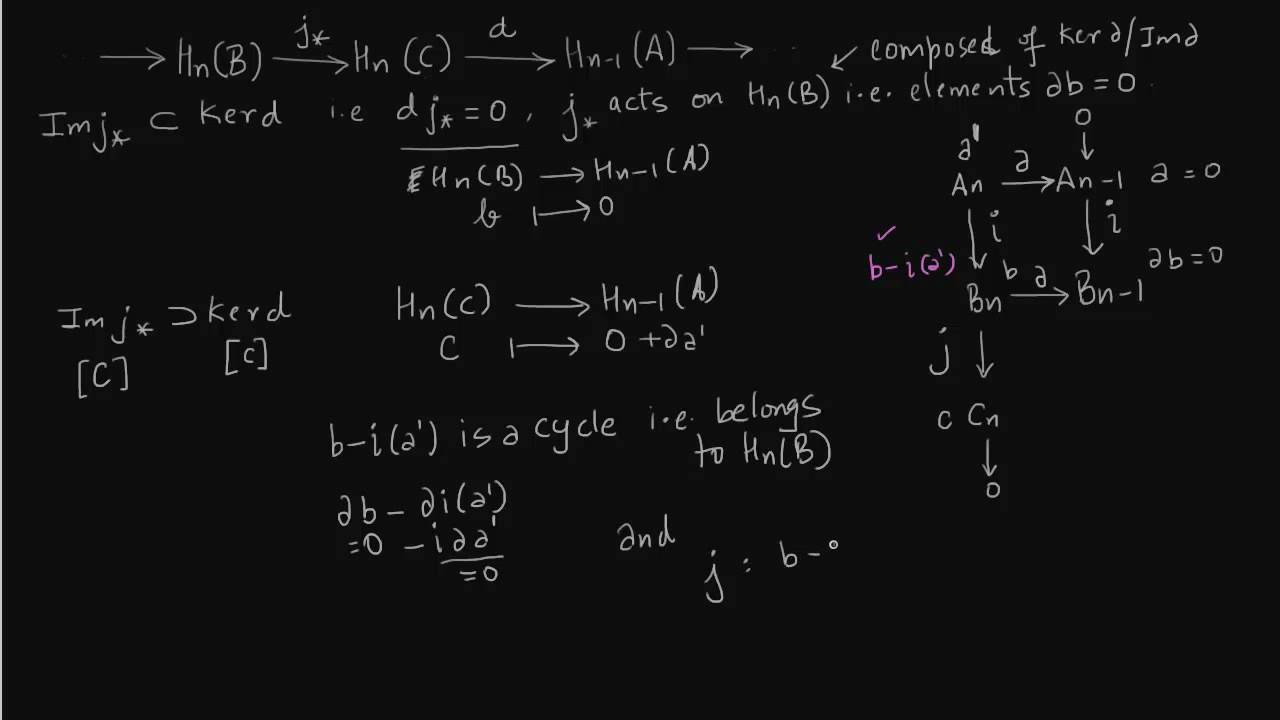 ⟶ Hn(B) ⟶ j* Hn(C) ⟶ d Hn-1(A) ⟶ ..
↙ composed of Ker∂/Im∂
Im j* ⊂ Kerd i.e d j* = 0, j* acts on Hn(B) i.e. elements ∂b = 0
Hn(B) ⟶ Hn-1(A)
b ⟼ 0
0
↓
a'
An ⟶ ∂ An-1 a = 0
↓ i ↓ i
✓
b-i(a') b
Bn ⟶ ∂ Bn-1 ∂b = 0
Im j* ⊃ Kerd Hn(C) ⟶ Hn-1(A)
[C] [c] C ⟼ 0 + ∂a'
j ↓
c Cn
↓
0
b-i(a') is a cycle i.e. belongs
to Hn(B)
∂b - ∂i(a')
= 0 - i∂a'
= 0
and
j : b -